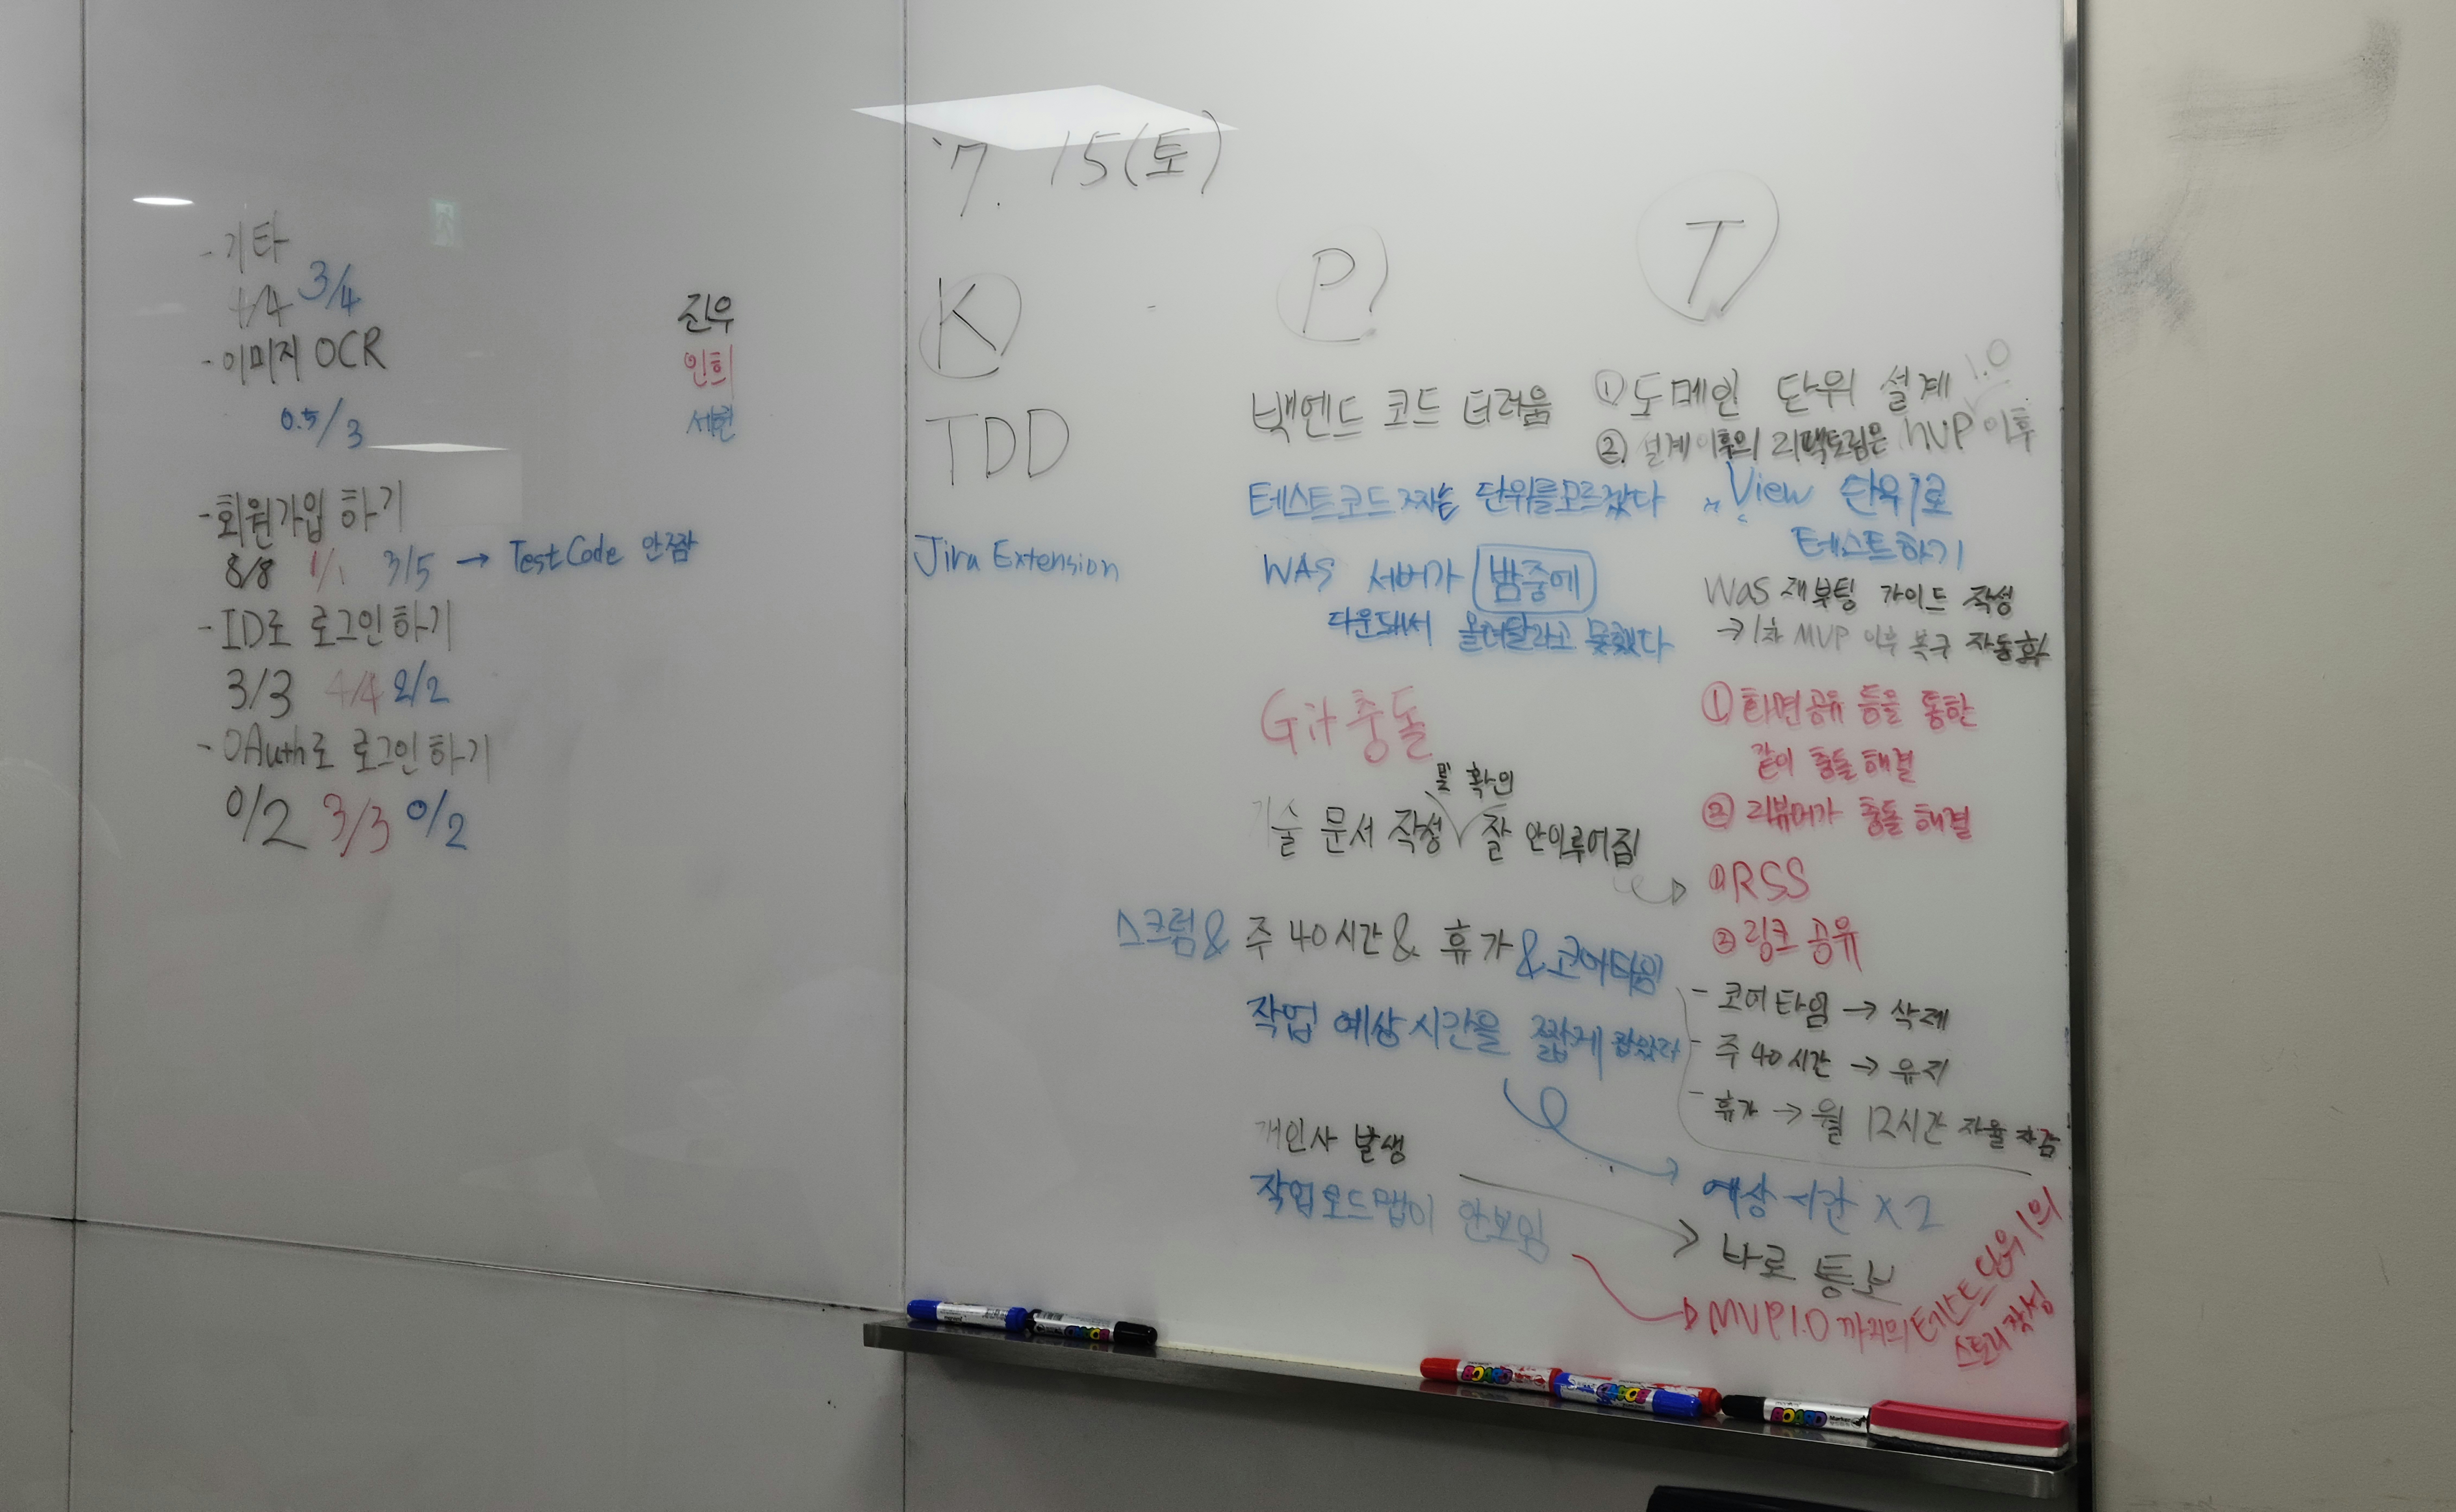 - 기타
4/4 3/4
- 이미지 OCR
0.5/3
- 회원가입 하기
8/8 1/1 3/5 → Test Code 안짬
- ID로 로그인하기
3/3 4/4 2/2
- OAuth로 로그인하기
0/2 3/3 0/2
진우
인희
세헌
7. 15(토)
K
TDD
Jira Extension
P
백엔드 코드 더러움
테스트코드 짜는 단위를모르겠다
WAS 서버가 밤중에
다운돼서 올려달라고 못했다
Git 충돌
기술 문서 작성 및 확인 잘 안이루어짐
스크럼 & 주 40시간 & 휴가 & 코어타임
작업 예상시간을 짧게 잡았다
개인사 발생
작업로드맵이 안보임
T
① 도메인 단위 설계
② 설계이후의 리팩토링은 MVP 1.0 이후
View 단위로
테스트하기
Was 재부팅 가이드 작성
→ 1차 MVP 이후 복구 자동화
① 화면공유 등을 통한
같이 충돌 해결
② 리뷰어가 충돌 해결
① RSS
② 링크 공유
- 코어타임 → 삭제
- 주 40시간 → 유지
- 휴가 → 월 12시간 자율 차감
예상 시간 x 2
바로 통보
MVP1.0 까지의 테스트 단위의
스토리 작성